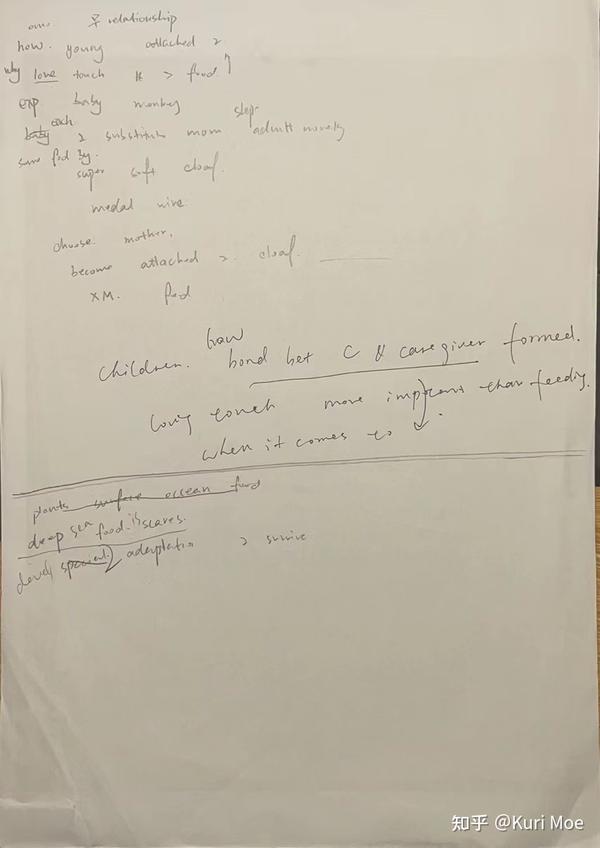 relationship
how. young attached 2
why love touch > food ↑
exp baby monkey
each
baby 2 substitute mom
by.
super soft cloaf.
medal wire
choose mother,
become attached 2. cloaf.
XM. food
how
children. bond bet C & caregiver formed.
loving touch more important than feeding.
when it comes to
plants surface ocean food
deep sea food is scares.
adaptation 2 survive
知乎 @Kuri Moe